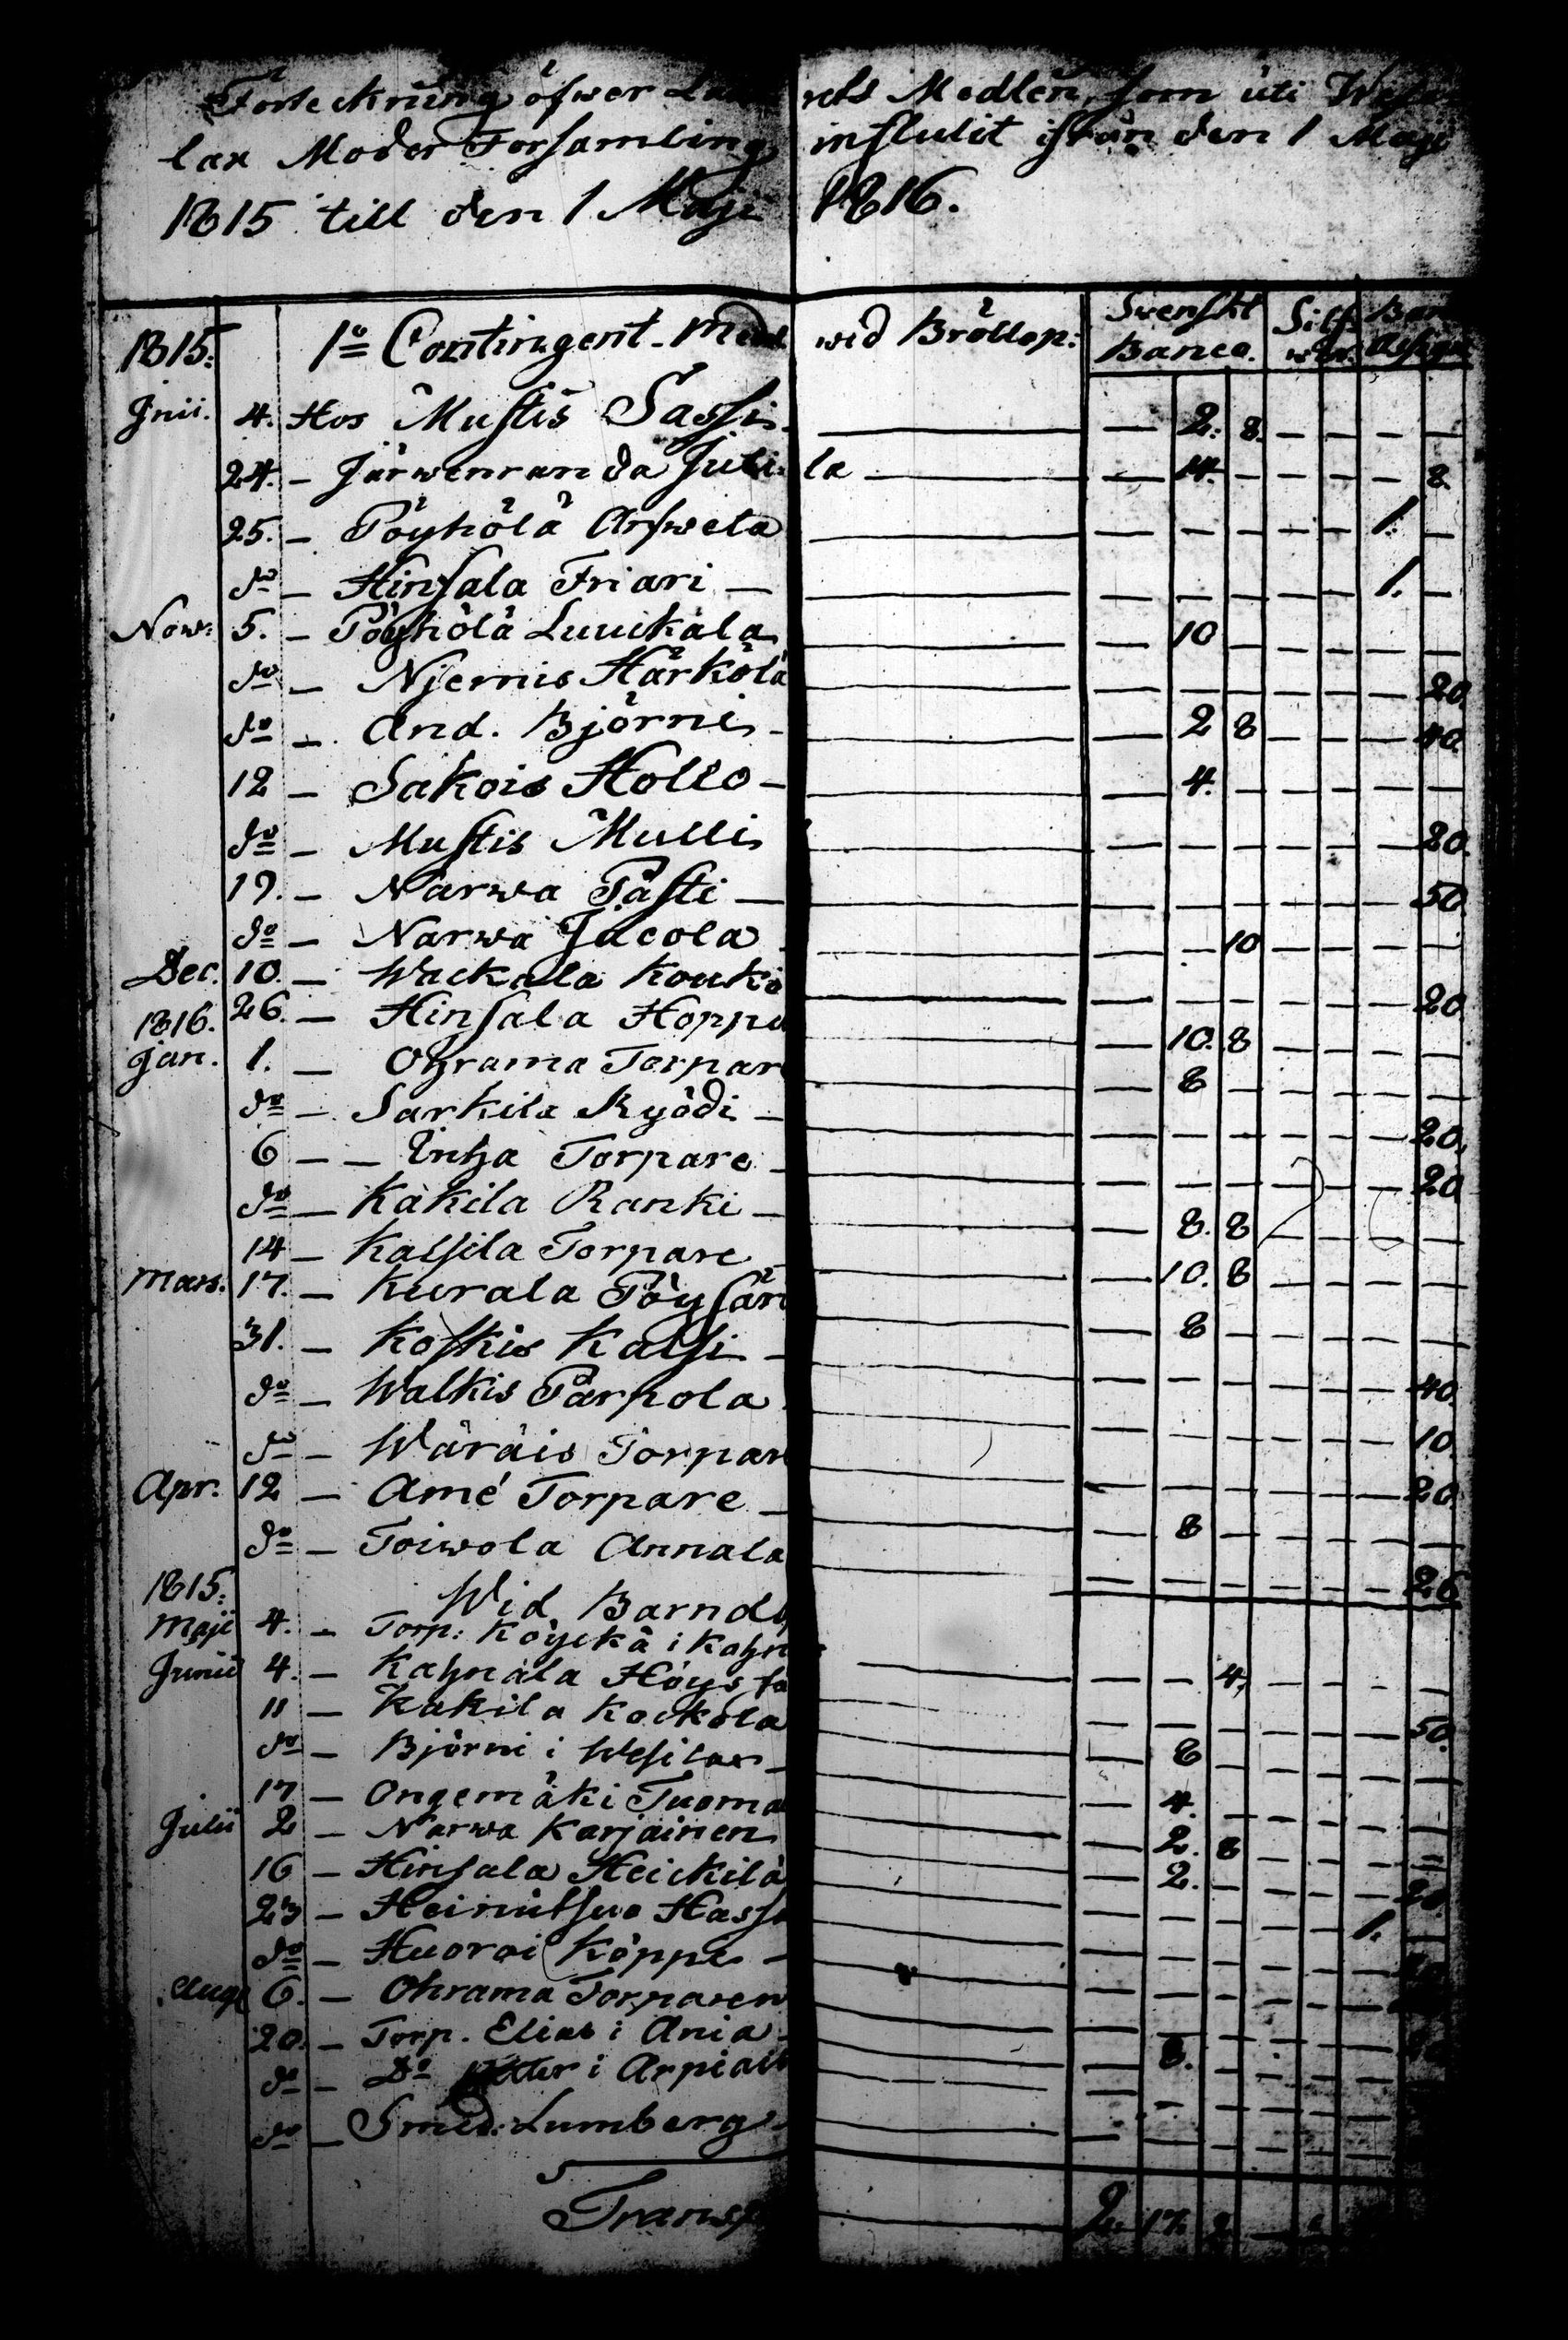 Förteckning öfwer Laza retts Medlen, som uti Wesi
lax Moder Församling influtit ifrån den 1 Maji
1815 till den 1 Maji 1816.
1815: 1o Contingent-Medl wid Bröllop: Swenskt Banco. Silfwer. Banco Assign
Junii. 4. Hos Mustis Sassi — — 2: 8. — — — —
24. — Järwenranda Jutila — — 4. — — — — 8.
25. — Pöyhölä Arfwela — — — — — — 1. —
do — Hinsala Friari — — — — — — 1. —
Now: 5. — Pöyhölä Luuikala — — 10 — — — — —
do — Njemis Härkölä — — — — — — — 20.
do — And. Björni — — 2 8 — — — 40.
12 — Sakois Hollo — — 4. — — — — —
do — Mustis Mulli — — — — — — — 20.
19. — Narwa Pästi — — — — — — — 50.
do — Narwa Jacola — — — 10 — — — —
Dec. 10. — Wackala Kouki — — — — — — — 20.
26. — Hinsala Hoppu — — 10. 8 — — — —
1816.
Jan. 1. — Ohrama Torpar — — 8 — — — — —
do — Sarkila Kyödi — — — — — — — 20.
6 — — Inha Torpare — — — — — — — 20
do — Kakila Ranki — — 8. 8 — — — —
14 — Kalsila Torpare — — 10. 8 — — — —
Mars. 17. — Kurala Pöysäri — — 8 — — — — —
31. — Koskis Kalsi — — — — — — — 40.
do — Walkis Parpola — — — — — — — 10.
do — Wäräis Torpar — — — — — — — 20.
Apr. 12 — Amé Torpare — — 8 — — — — —
do — Toiwola Annala — — — — — — — 26.
1815: Wid Barnd
Maji 4. — Torp: Köyckä i Kahn — — — 4. — — — —
Junii 4. — Kahnala Höystä — — — — — — — 50.
11 — Kakila Kockola — — 8 — — — — —
do — Björni i Wesilax — — 4. — — — — —
17 — Ongemäki Tuoma — — 2. 8 — — — —
Julii 2 — Narwa Karjainen — — 2. — — — — 20.
16 — Hinsala Heickilä — — — — — — 1. —
23 — Heinitsuo Hassi
do — Huoroi Köppi —
Aug. 6. — Ohrama Torparen
20. — Torp. Elias i Ania — — 8. —
do — Do Petter i Arpiais
do — Smed: Lumberg
Transp 2. 17.